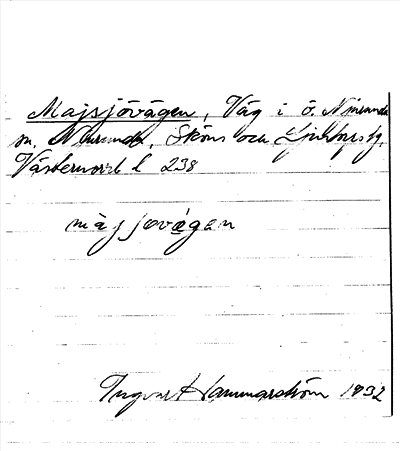 Majsjövägen, Väg i ö. Njurunda
sn. Njurunda, Sköns och Ljustorps tg.
Västernorrl l 238
màjsjovägan
Ingvar Hammarström 1932